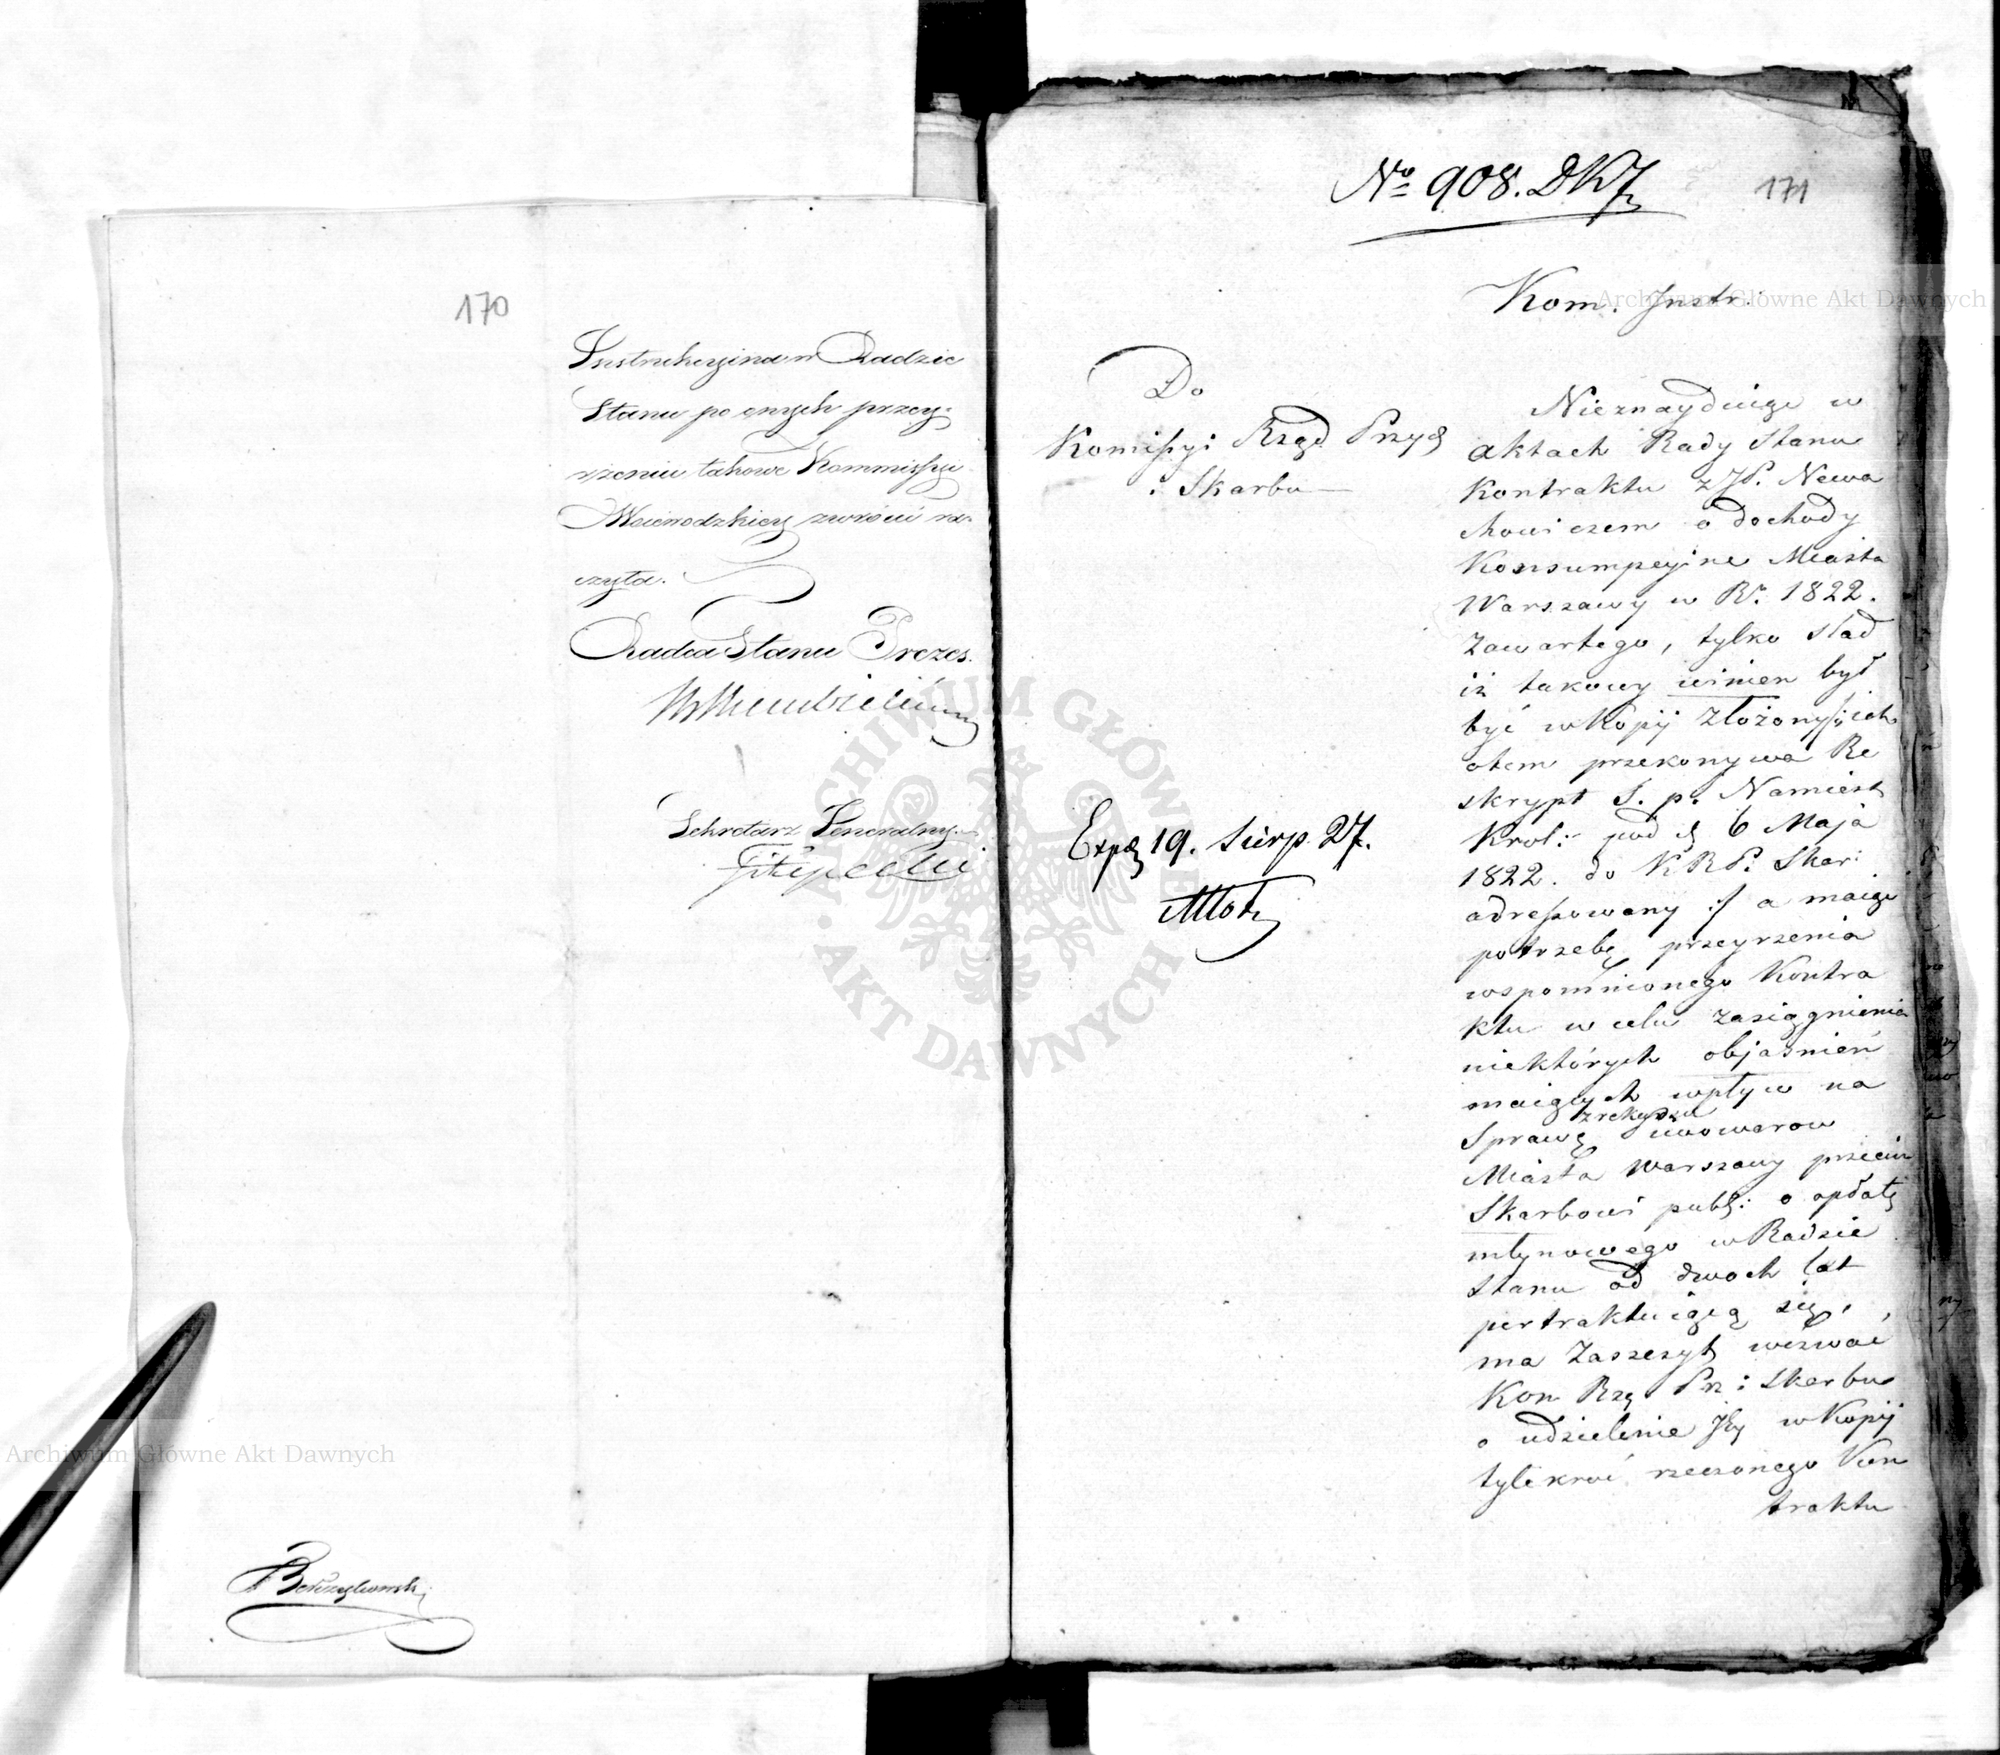 170
Instrukcyina w Radzie
Stanu po onych przey-
rzeniu takowe Kommissyi
Woiewodzkiey zwrócić ra-
czyła.
Radca Stanu Prezes.
Sekretarz Generalny.
Filipecki
No 908. DKJ
171
Kom. Instr:
Do
Komissyi Rząd Przych
i Skarbu
Nieznayduiąc w
aktach Rady Stanu
Kontraktu z JP. Newa
chowiczem o dochody
Konsumpcyine Miasta
Warszawy w Rr. 1822.
zawartego, tylko slad
iż takowy winien był
być w Kopij złożony /: iak
otem przekonywa Re
skrypt S. p. Namiest
Krol: pod d 6 Maja
1822. do K R P. Skar:
adressowany :/ a maiąc
potrzebę przeyrzenia
wspomnionego Kontra
ktu w celu zasiągnienia
niektórych objasnień
maiących wpływ na
Sprawę
Miasta Warszawy przeciw
Skarbowi publ: o opłatę
młynowego w Radzie
Stanu od dwoch lat
pertraktuiącą się,
ma Zaszczyt wezwać
Kom Rzą Prz: Skarbu
o udzielenie Jey w Kopij
tylekroć rzeczonego Kon
traktu
Exped 19. Sierp. 27.
Archiwum Główne Akt Dawnych
Archiwum Główne Akt Dawnych
ARCHIWUM GŁÓWNE • AKT DAWNYCH